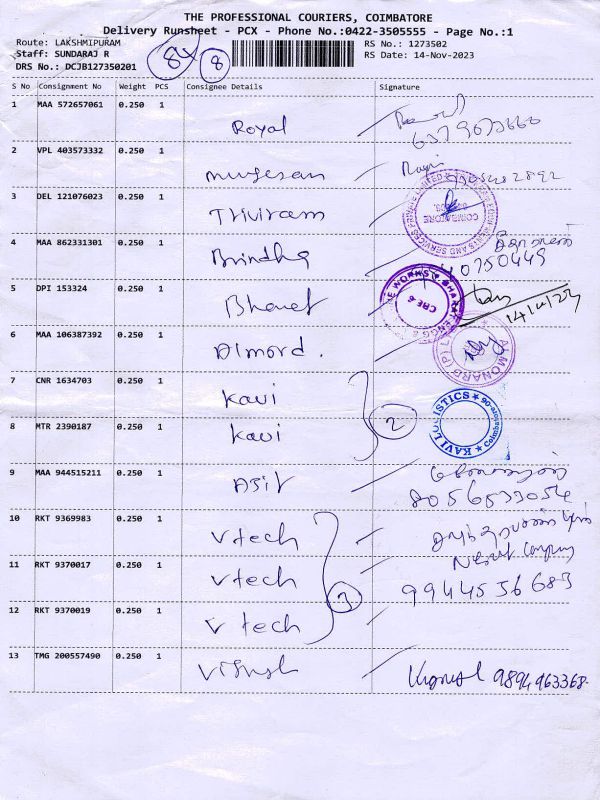 THE PROFESSIONAL COURIERS, COIMBATORE
Delivery Runsheet - PCX - Phone No.:0422-3505555 - Page No.:1
Route: LAKSHMIPURAM
RS No.: 1273502
Staff: SUNDARAJ R
8
RS Date: 14-Nov-2023
DRS No.: DCJB127350201
S No Consignment No Weight PCS Consignee Details Signature
1 MAA 572657061 0.250 1
Royal
2 VPL 403573332 0.250 1
murgesan
3 DEL 121076023 0.250 1
Triviram
COIMBATORE
4 MAA 862331301 0.250 1
Brindha
5 DPI 153324 0.250 1
Bharat
14/11/23
6 MAA 106387392 0.250 1
Almord.
7 CNR 1634703 0.250 1
Kavi
2
8 MTR 2390187 0.250 1
Kavi
KAVI LOGISTICS
9 MAA 944515211 0.250 1
Asit
8056533054
10 RKT 9369983 0.250 1
Vtech
11 RKT 9370017 0.250 1
Vtech
3
9944556683
12 RKT 9370019 0.250 1
V tech
13 TMG 200557490 0.250 1
Vignesh
Vignesh 9894963368.